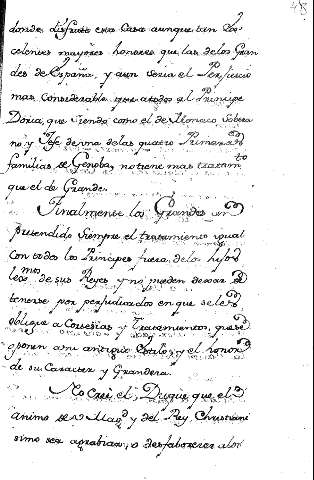 48
donde disfruta esta Casa aunque tan Ex
celentes mayores honores que las de los Gran
des de España, y aun seria el Perjuicio
mas considerable que a todos al Principe
Doria, que siendo como el de Monaco Sobera
no y Jefe de una de las quatro Primeras
familias de Genoba, no tiene mas tratam.to
que el de Grande.
Finalmente los Grandes an
pretendido siempre el tratamiento igual
con todos los Principes fuera de los hijos
de sus Reyes y no pueden dexar de
tenerse por perjudicados en que se les
obligue a Cortesias y Tratamientos, que se
oponen a su antiguo estilo, y el honor
de su Caracter y Grandeza.
No cree el Duque que el
animo de V. Mag.d y del Rey Christiani
simo sea agrabiar, o desfaborecer a los